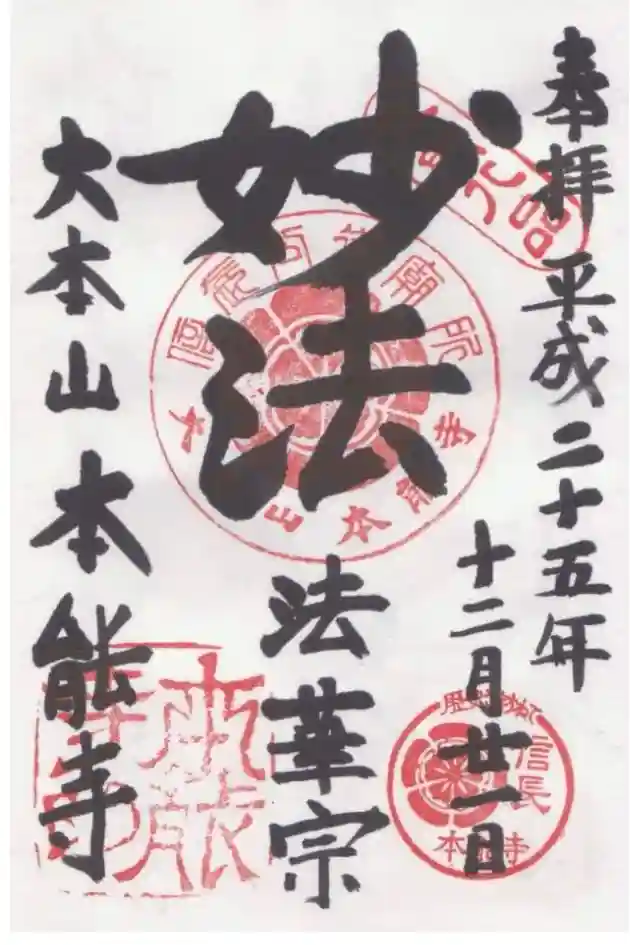 奉拝 平成二十五年
十二月廿一日
妙法
法華宗
大本山 本能寺
信長
本能寺